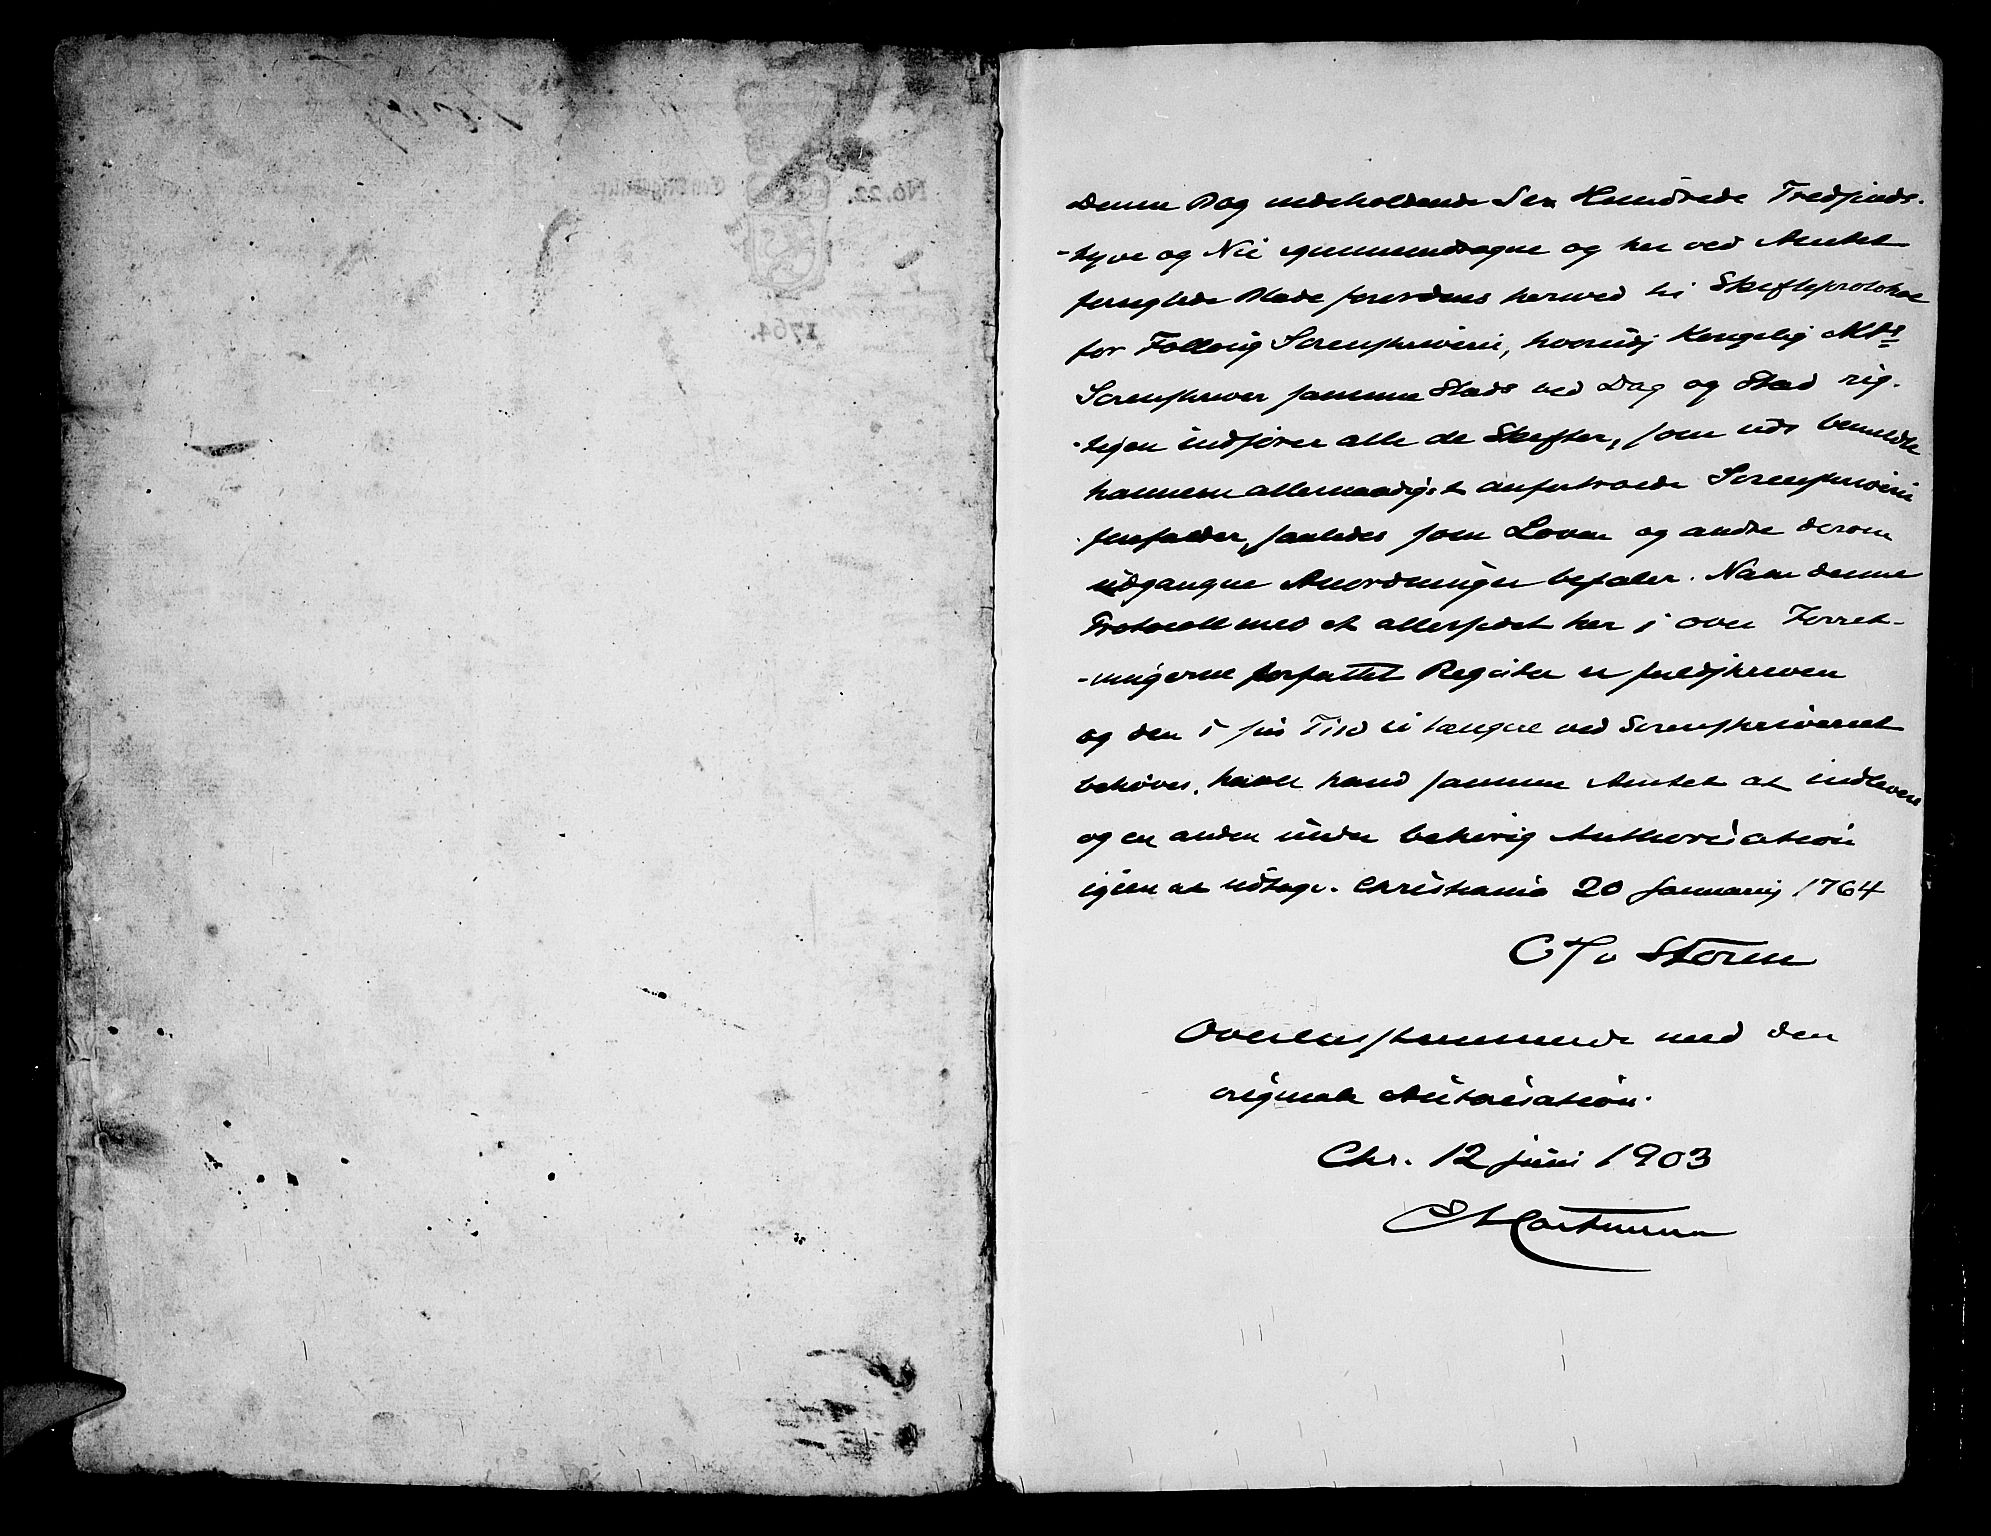 No. 22.
1764.
Denne Bog indeholdende Sex Hundrede Tredsinds-
-tyve og Nie gennemdragne og her ved Amtet
forseglede Blade forordnes herved til Skifteprotokol
for Folloug Sorenskriverie, hvorudj Kongelig Mts
Sorenskriver samme Stæds ved Dag og Stad rig-
-tigen indfører alle de Skifter, som udi bemeldte
hannem allernaadigst anfortroede Sorenskriverie
forfalder, saaledes som Loven og andre derom
udgangne Anordninger befaler. Naar denne
Protocoll med et allersidst her i over Forret-
-ningerne forfattet Register er fuldskreven
og den i sin Tiid ei længere ved Sorenskriveriet
behøves, haver hand samme Amtet at indlevere
og en anden under behørig Authorisation
igien at udtage. Christiania 20 Januarij 1764
Storm
Overensstemmende med den
originale Autorisation.
Chr. 12 juni 1903